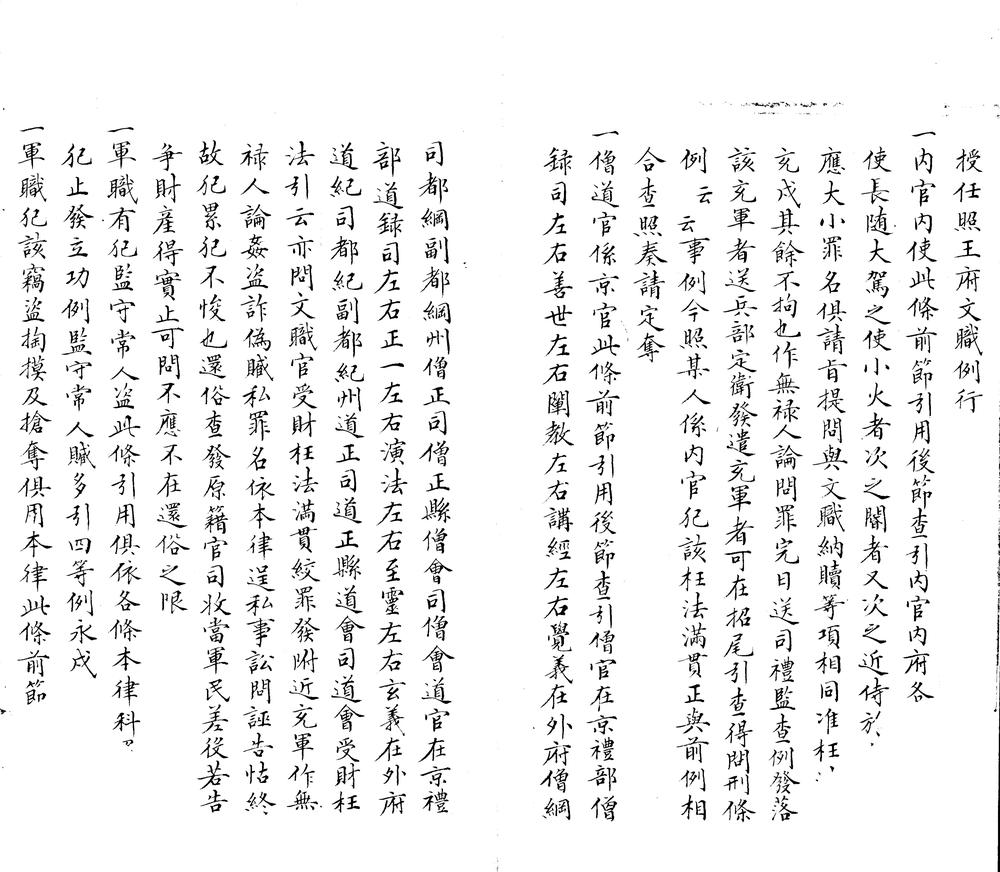 授任照王府文職例行
一內官內使此條前節引用後節查引內官內府各
使長随大駕之使小火者次之閽者又次之近侍於
應大小罪名俱請旨提問與文職納贖等項相同准枉
充戍其餘不拘也作無禄人論問罪完日送司禮監查例發落
該充軍者送兵部定衛發遣充軍者可在招尾引查得問刑條
例云云事例今照某人係內官犯該枉法滿貫正與前例相
合查照奏請定奪
一僧道官係京官此條前節引用後節查引僧官在京禮部僧
録司左右善世左右闡教左右講經左右覺義在外府僧綱
司都綱副都綱州僧正司僧正縣僧會司僧會道官在京禮
部道録司左右正一左右演法左右至靈左右玄義在外府
道紀司都紀副都紀州道正司道正縣道會司道會受財枉
法引云亦問文職官受財枉法滿貫絞罪發附近充軍作無
禄人論姦盗詐僞贓私罪名依本律逞私事訟問誣告怙終
故犯累犯不悛也還俗查發原籍官司收當軍民差役若告
争財産得實止可問不應不在還俗之限
一軍職有犯監守常人盗此條引用俱依各條本律科
犯止發立功例監守常人贓多引四等例永戍
一軍職犯該竊盗掏摸及搶奪俱用本律此條前節